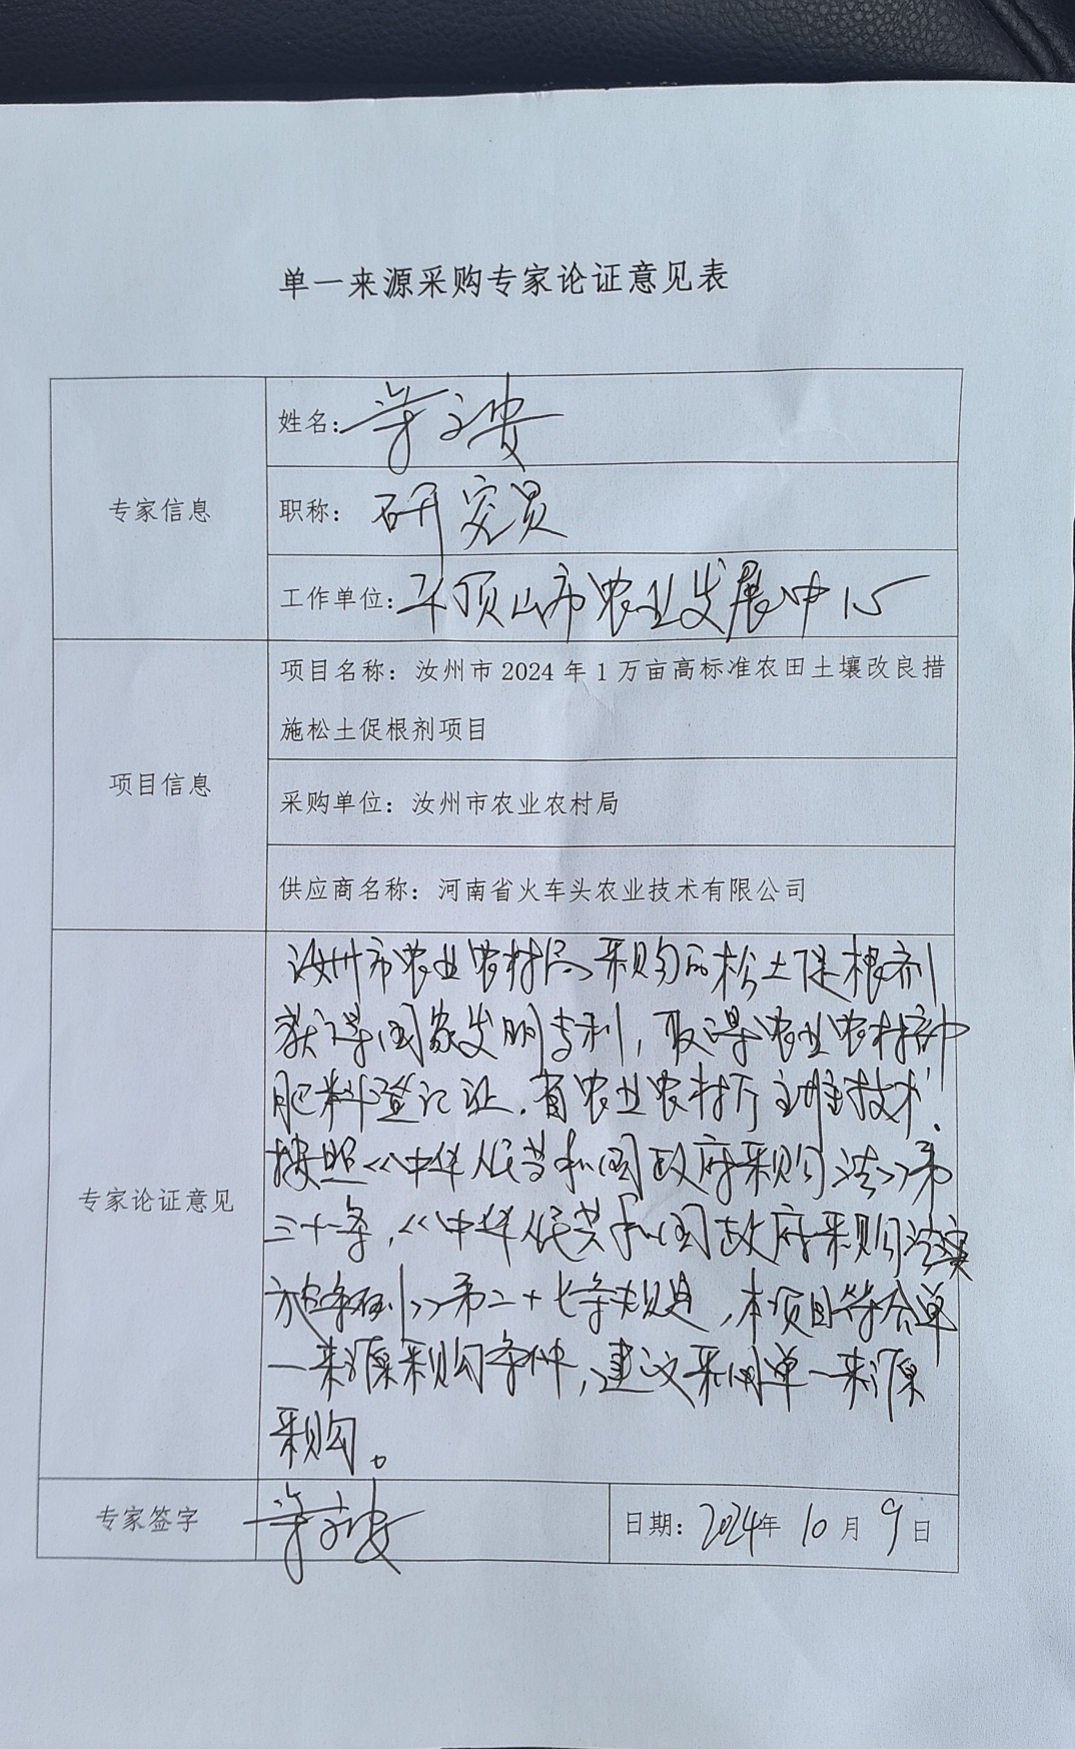 单一来源采购专家论证意见表
专家信息
姓名：
职称：研究员
工作单位：平顶山市农业发展中心
项目信息
项目名称：汝州市2024年1万亩高标准农田土壤改良措
施松土促根剂项目
采购单位：汝州市农业农村局
供应商名称：河南省火车头农业技术有限公司
专家论证意见
汝州市农业农村局采购的松土促根剂
获得国家发明专利，取得农业农村部
肥料登记证，省农业农村厅主推技术，
按照《中华人民共和国政府采购法》第
三十一条，《中华人民共和国政府采购法实
施条例》第二十七条规定，本项目符合单
一来源采购条件，建议采用单一来源
采购。
专家签字
日期：2024年10月9日